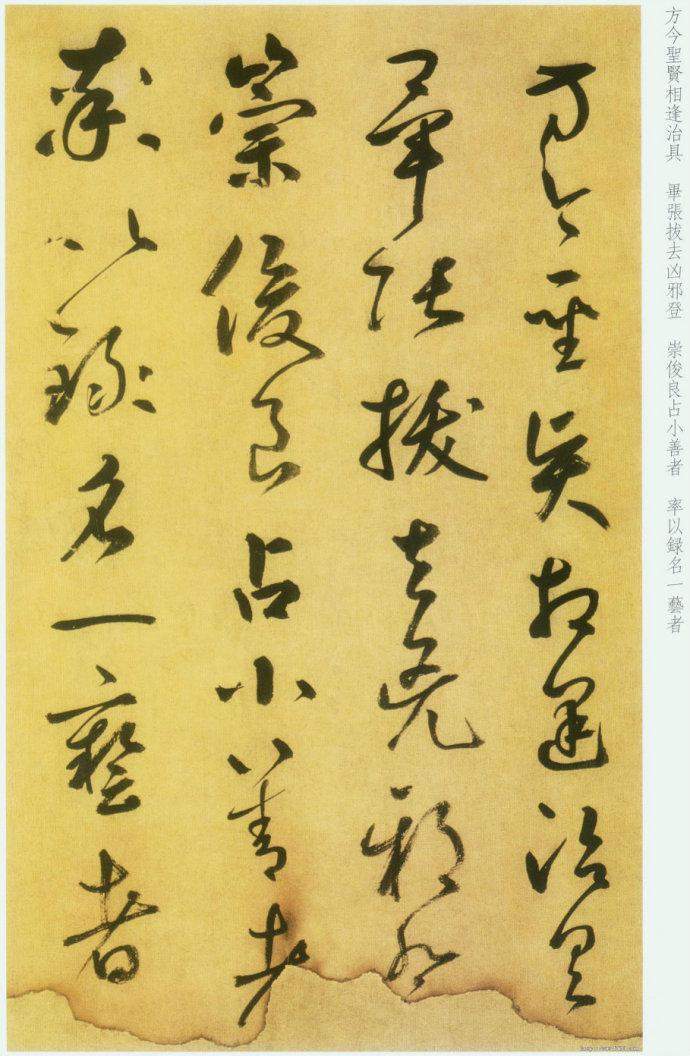 方今聖賢相逢治具 畢張拔去凶邪登 崇俊良占小善者 率以録名一藝者
方今聖賢相逢治具
畢張拔去兇邪登
崇俊良占小善者
率以録名一藝者